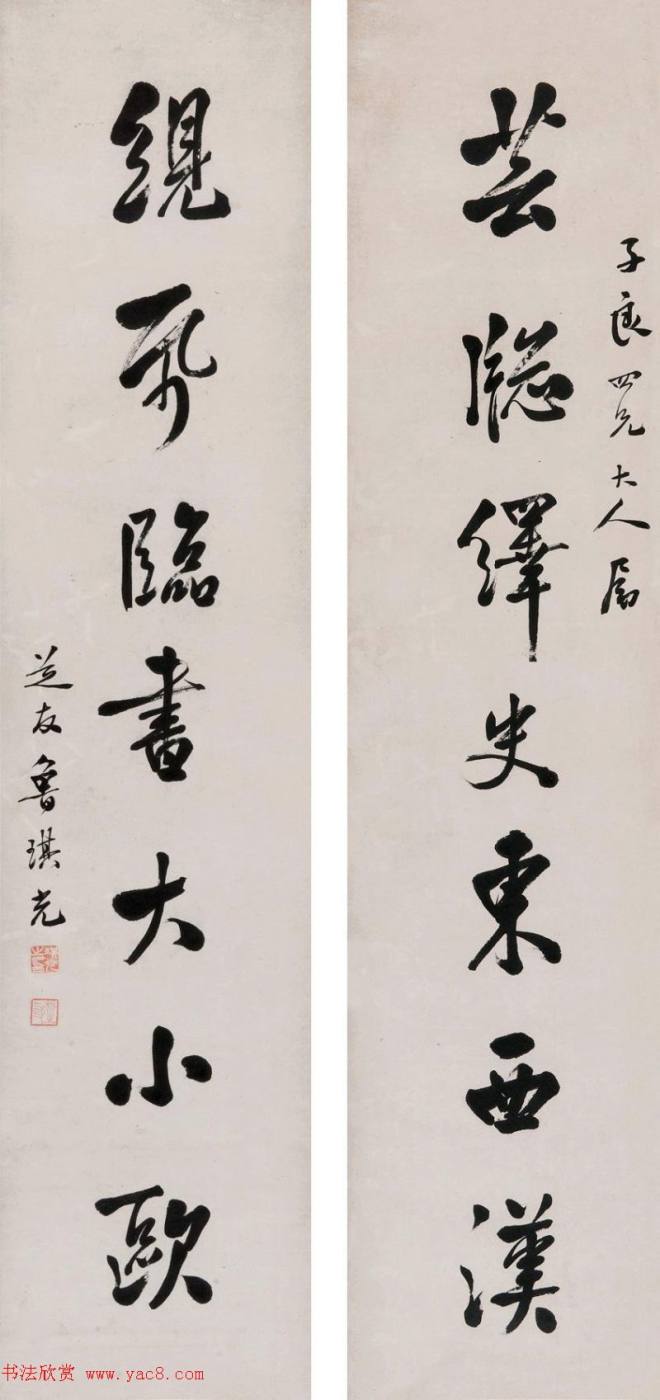 子良四兄大人属
芸牕繹史東西漢
絸帋臨書大小歐
芝友魯琪光
书法欣赏 www.yac8.com